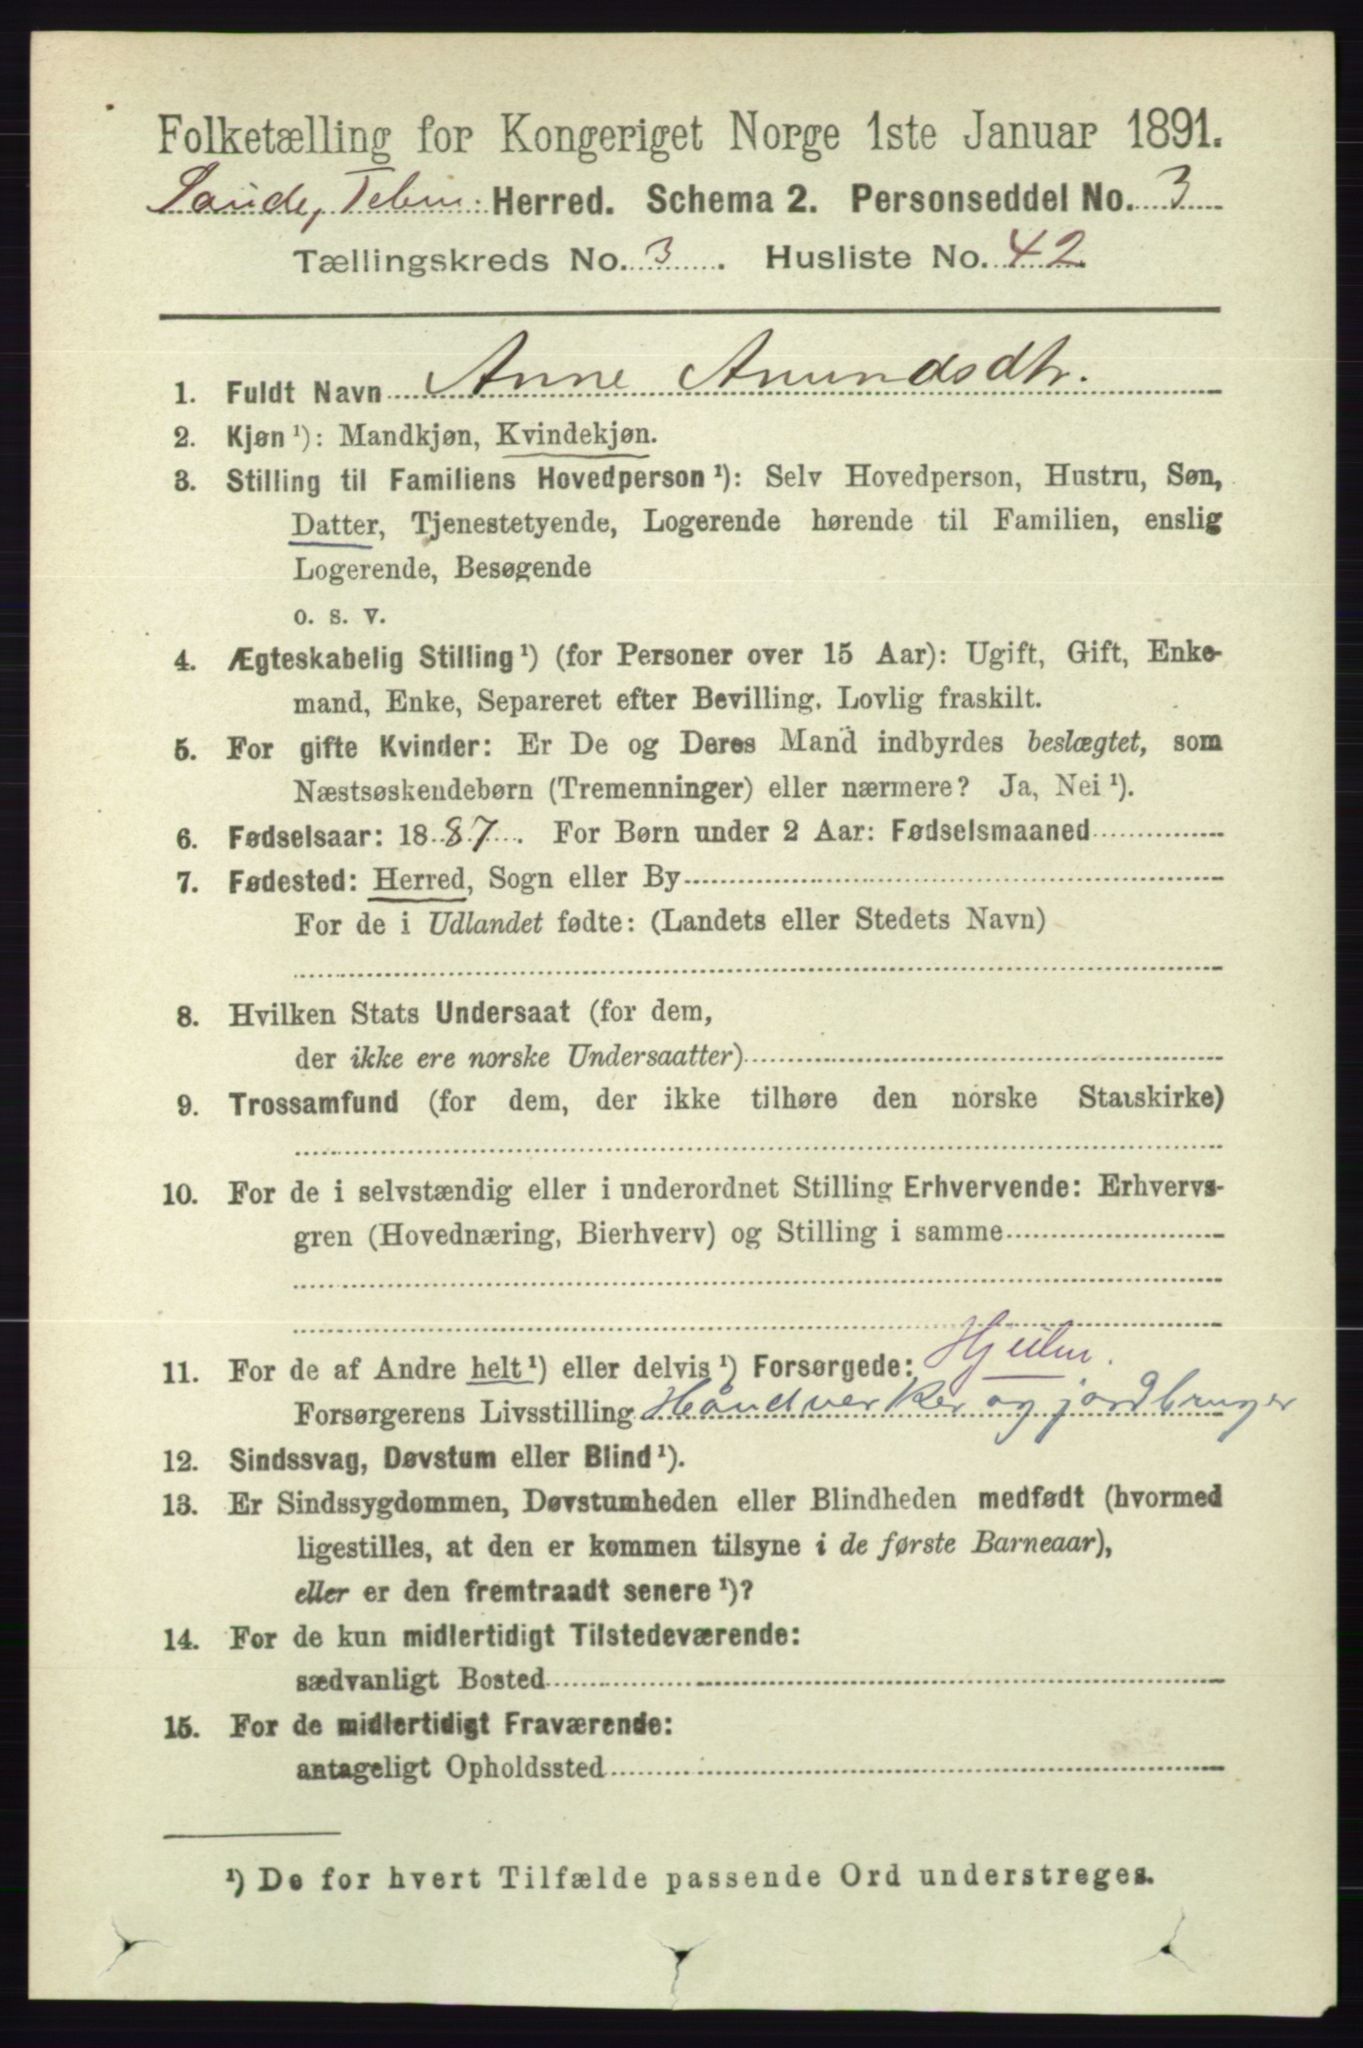 Folketælling for Kongeriget Norge 1ste Januar 1891.
Saude, Telm: Herred. Schema 2. Personseddel No. 3
Tællingskreds No. 3. Husliste No. 42
1. Fuldt Navn Anne Amundsdtr.
2. Kjøn ¹): Mandkjøn, Kvindekjøn.
3. Stilling til Familiens Hovedperson ¹): Selv Hovedperson, Hustru, Søn,
Datter, Tjenestetyende, Logerende hørende til Familien, enslig
Logerende, Besøgende
o. s. v.
4. Ægteskabelig Stilling ¹) (for Personer over 15 Aar): Ugift, Gift, Enke-
mand, Enke, Separeret efter Bevilling. Lovlig fraskilt.
5. For gifte Kvinder: Er De og Deres Mand indbyrdes beslægtet, som
Næstsøskendebørn (Tremenninger) eller nærmere? Ja, Nei ¹).
6. Fødselsaar: 1887. For Børn under 2 Aar: Fødselsmaaned
7. Fødested: Herred, Sogn eller By
For de i Udlandet fødte: (Landets eller Stedets Navn)
8. Hvilken Stats Undersaat (for dem,
der ikke ere norske Undersaatter)
9. Trossamfund (for dem, der ikke tilhøre den norske Statskirke)
10. For de i selvstændig eller i underordnet Stilling Erhvervende: Erhvervs-
gren (Hovednæring, Bierhverv) og Stilling i samme
11. For de af Andre helt ¹) eller delvis ¹) Forsørgede:
Forsørgerens Livsstilling Håndverker og jordbruger
12. Sindssvag, Døvstum eller Blind ¹).
13. Er Sindssygdommen, Døvstumheden eller Blindheden medfødt (hvormed
ligestilles, at den er kommen tilsyne i de første Barneaar),
eller er den fremtraadt senere ¹)?
14. For de kun midlertidigt Tilstedeværende:
sædvanligt Bosted
15. For de midlertidigt Fraværende:
antageligt Opholdssted
¹) De for hvert Tilfælde passende Ord understreges.